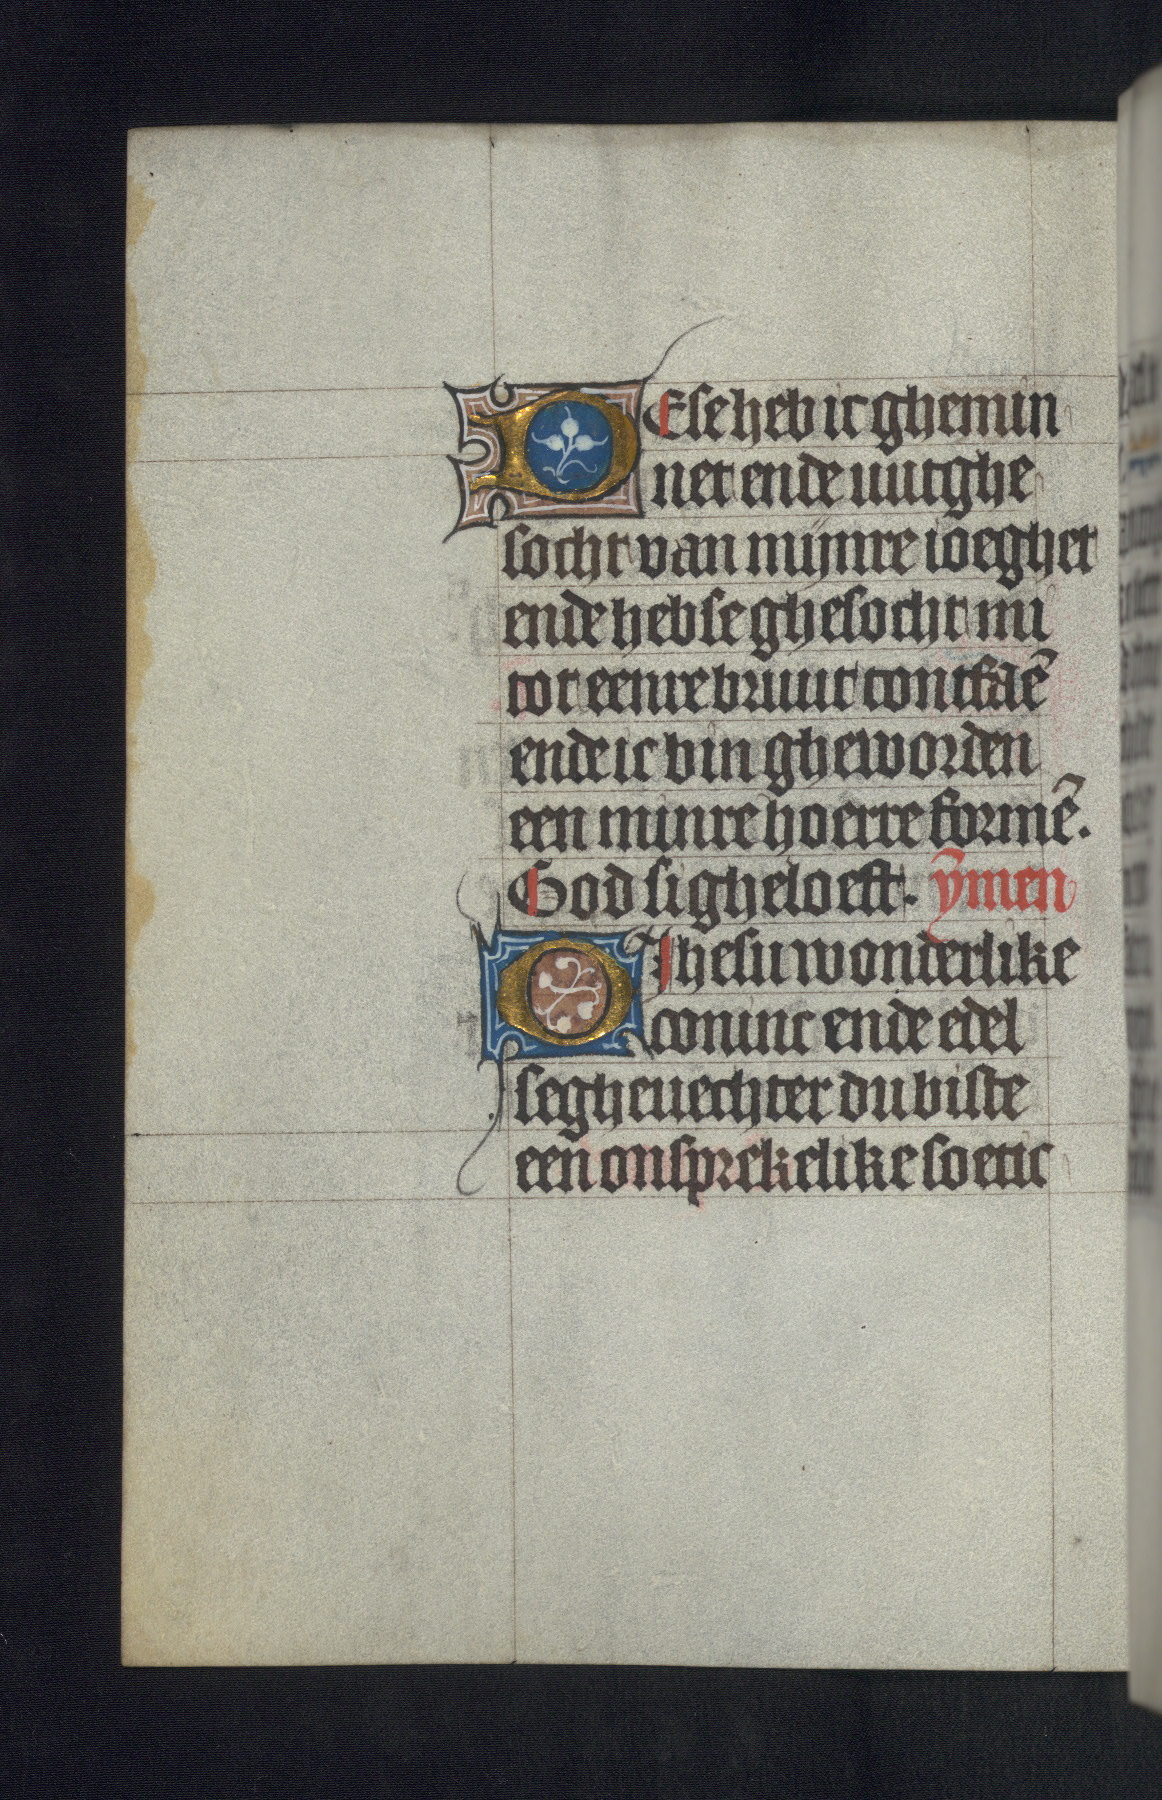 DEse heb ic ghemin
net ende uutghe
socht van mijnre ioeghet
ende heb se ghesocht mi
tot eenre bruut contfaē
ende ic bin gheworden
een minre hoerre formē.
God si gheloeft. ȳmen
O Ihesu wonderlike
coninc ende edel
segheuechter du biste
een onsprekelike soetic